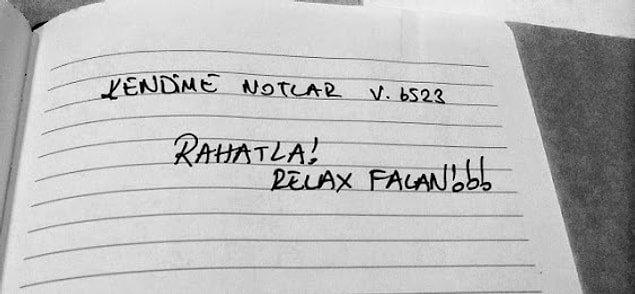 KENDİME NOTLAR V. 6523
RAHATLA!
RELAX FALAN!ööö